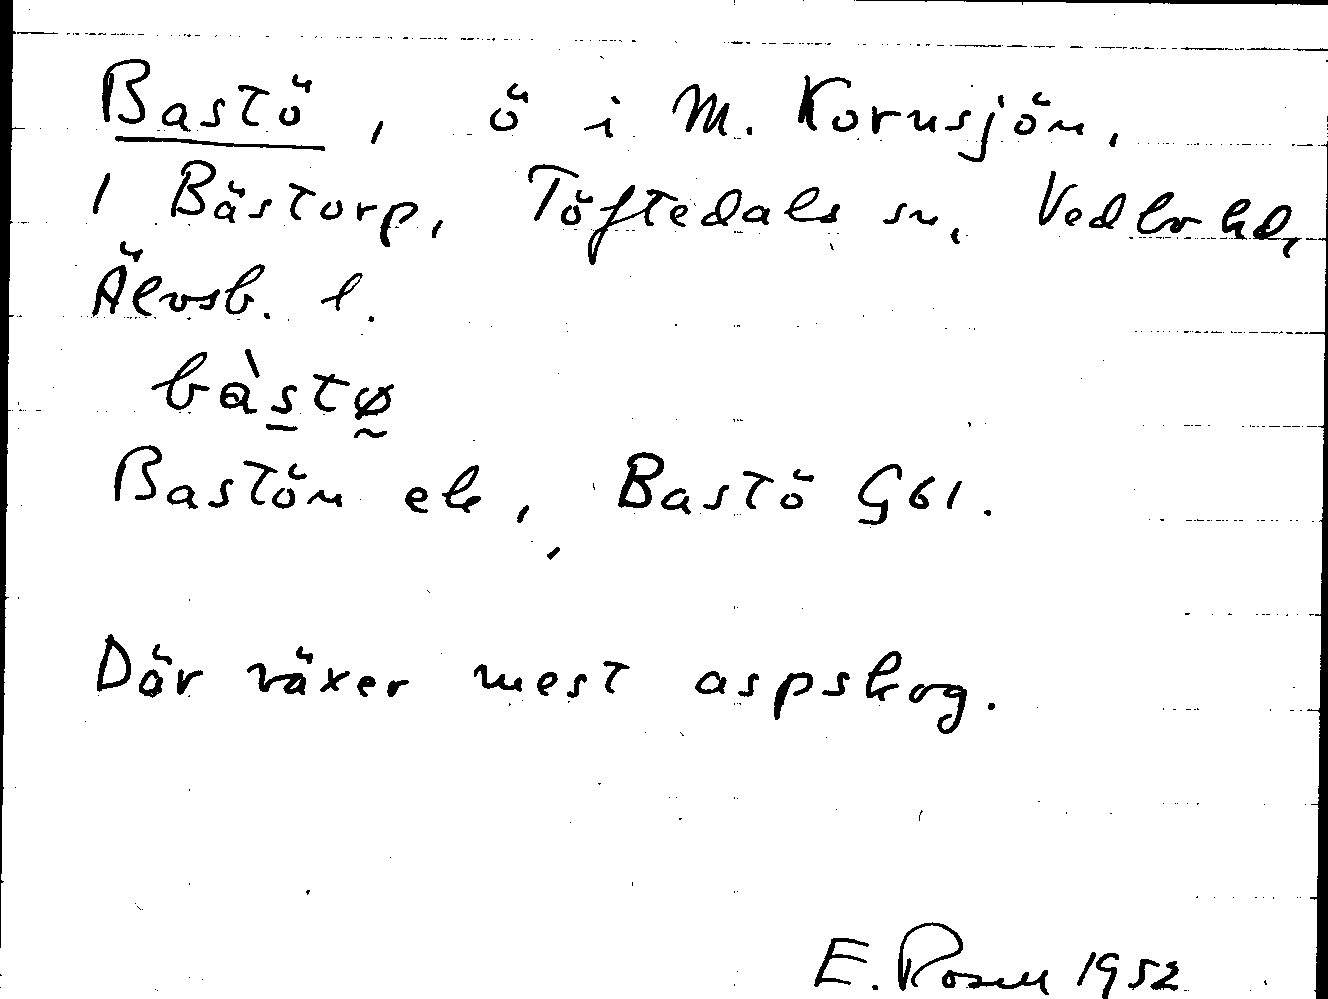 Bastö, ö i M. Kornsjön,
1 Bästorp, Töftedals sn, Vedbo hd,
Älvsb. l.
bàstø
Bastön ek, Bastö G61.
Där växer mest aspskog.
E. Rosell 1952